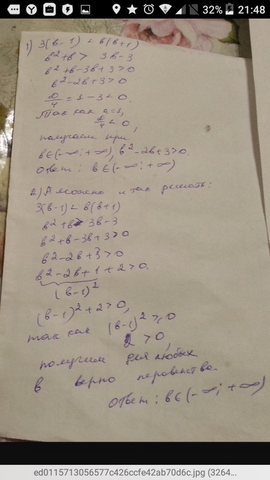 32% 21:48
1) 3(в-1) < в(в+1)
в²+в > 3в-3
в²+в-3в+3>0
в²-2в+3>0
D/4 = 1-3<0.
Так как а=1,
D/4 < 0,
получаем при
в∈(-∞;+∞), в²-2в+3>0.
Ответ: в∈(-∞;+∞)
2) А можно и так решать:
3(в-1) < в(в+1)
в²+в > 3в-3
в²+в-3в+3>0
в²-2в+3>0
в²-2в+1+2>0.
(в-1)²
(в-1)²+2>0,
так как (в-1)² ≥ 0
2 > 0,
получаем для любых
в верно неравенство.
Ответ: в∈(-∞;+∞)
ed0115713056577c426ccfe42ab70d6c.jpg (3264...